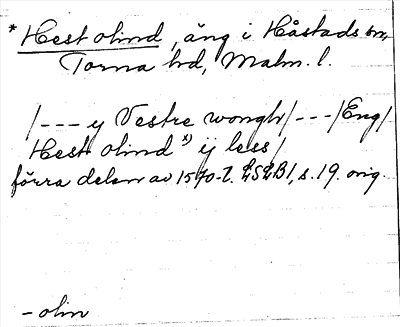 * Hest olind, äng i Håstads sn,
Torna hd, Malm. l.
/--- y Vestre wongh/---/Eng/
Hest olind x) ij less/
förra delen av 1570-t. LSLB1, s. 19. orig.
- olin